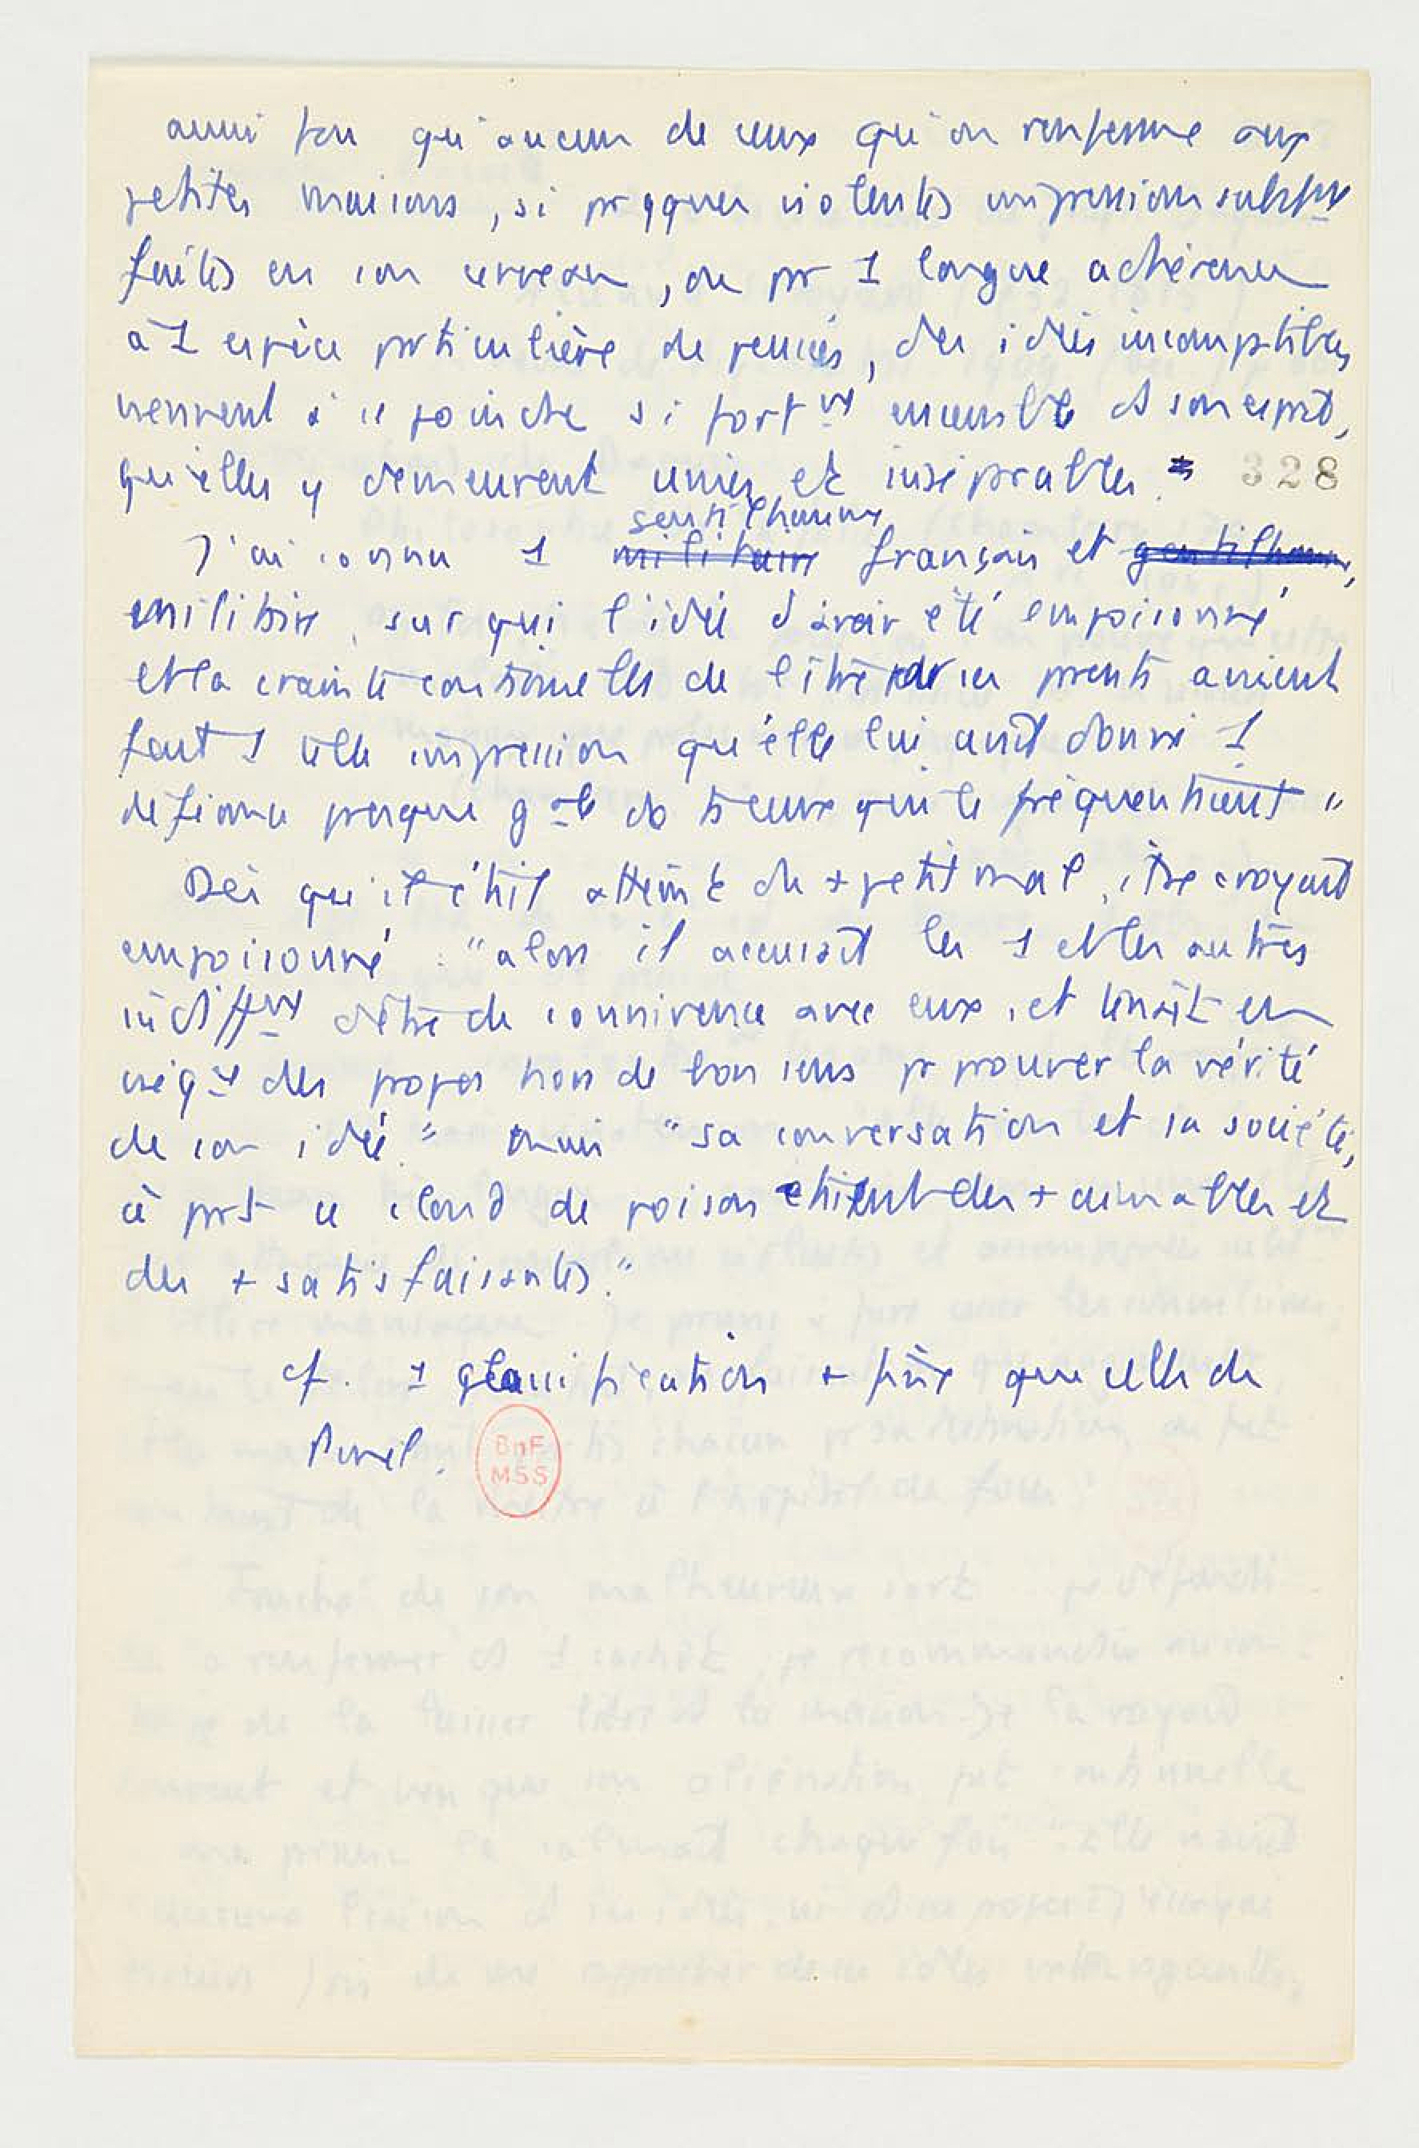 aussi fou qu'aucun de ceux qu'on renferme aux
petites maisons, si pr qques violentes impressions
faites en son cerveau, ou pr 1 longue adhérence
à 1 espèce particulière de pensées, des idées incomptibles
viennent à se joindre si fortmt ensemble ds son esprit,
qu'elles y demeurent unies et inséparables." 328
gentilhomme
J'ai connu 1 militaire français et gentilhomme,
militaire, sur qui l'idée d'avoir été empoisonné
et la crainte continuelle de l'être de ses prents avaient
fait 1 telle impression qu'elle lui avait donné 1
défiance presque gale de ts ceux qui le fréquentaient "
Dès qu'il était atteint du + petit mal, il se croyait
empoisonné : "alors il accusait les 1 et les autres
indiffmt d'être de connivence avec eux, et tenait en
des propos hors de bon sens pr prouver la vérité
de son idée" mais "sa conversation et sa société,
à prt ce de poison étaient des + aimables et
des + satisfaisantes."
cf. 1 classification + fine que celle de
Pinel.
BnF
MSS